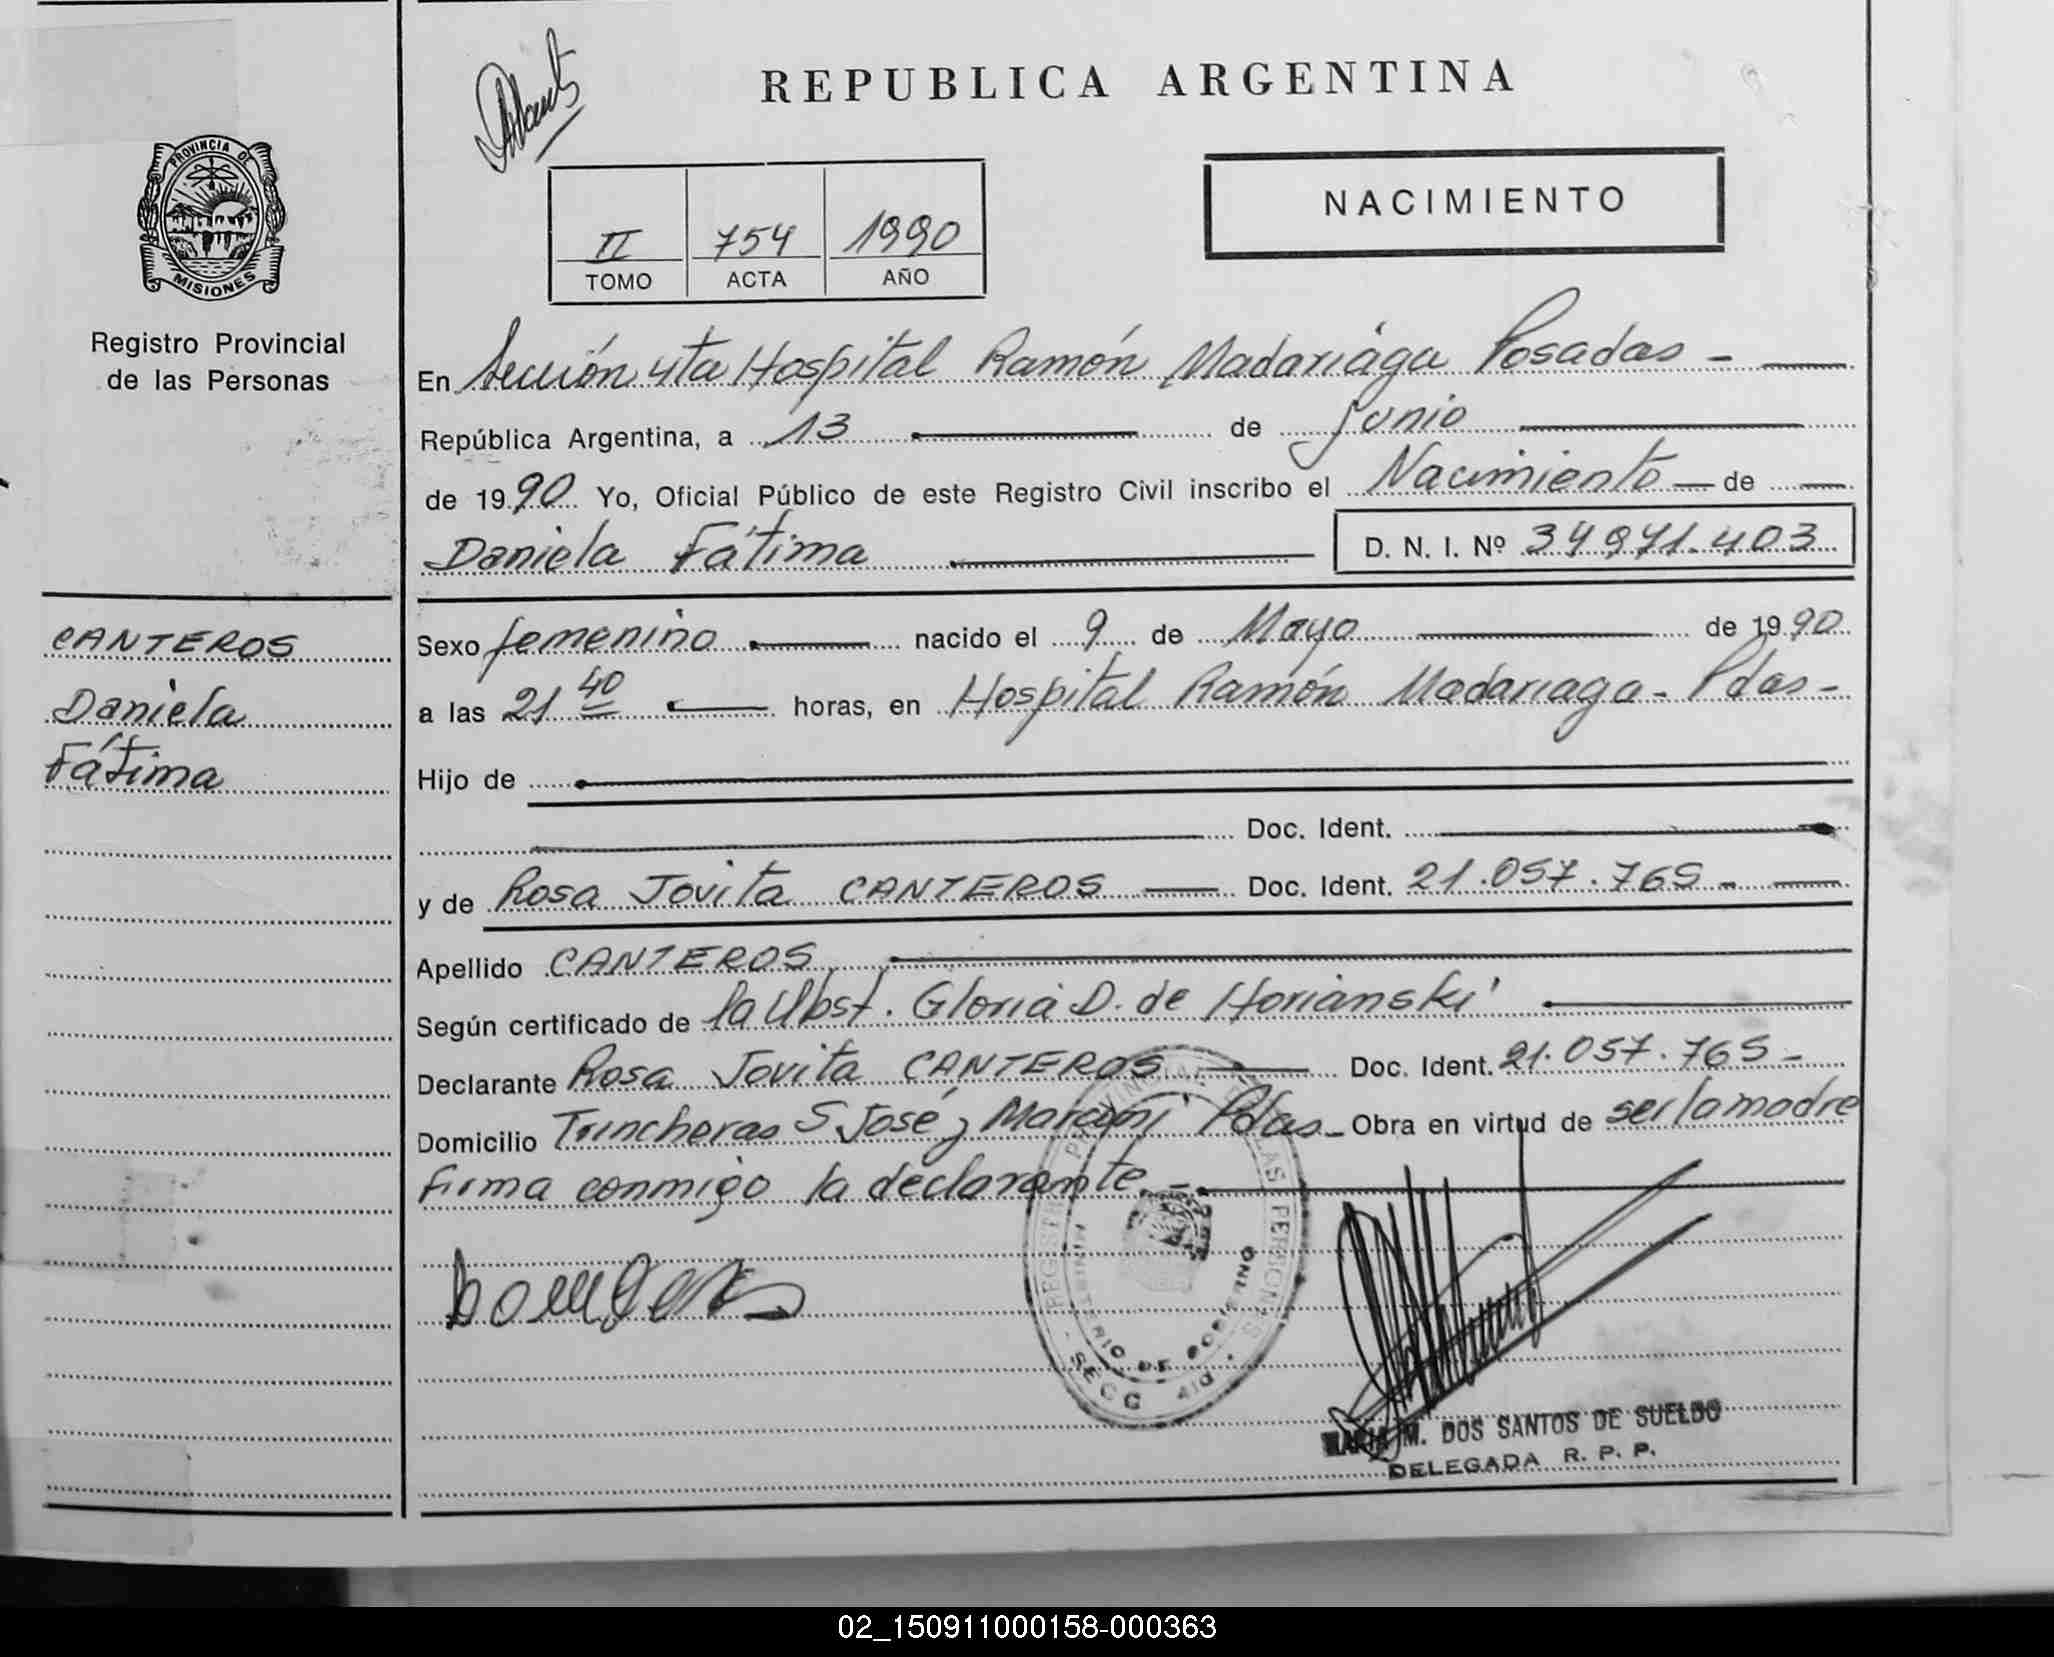 REPUBLICA ARGENTINA
PROVINCIA DE
MISIONES
Registro Provincial
de las Personas
NACIMIENTO
II 754 1990
TOMO ACTA AÑO
En Sección 4ta Hospital Ramón Madariaga Posadas -
República Argentina, a 13 de Junio
de 1990 Yo, Oficial Público de este Registro Civil inscribo el Nacimiento de
Daniela Fátima D. N. I. Nº 34971.403
CANTEROS
Daniela
Fátima
Sexo femenino nacido el 9 de Mayo de 1990
a las 21 40 horas, en Hospital Ramón Madariaga - Pdas -
Hijo de
Doc. Ident.
y de Rosa Jovita CANTEROS Doc. Ident. 21.057.765 -
Apellido CANTEROS
Según certificado de la Obst. Gloria D. de Horianski
Declarante Rosa Jovita CANTEROS Doc. Ident. 21.057.765 -
Domicilio Trincheras S José y Marconi Pdas - Obra en virtud de ser la madre
firma conmigo la declarante -
REGISTRO PROVINCIAL DE LAS PERSONAS
MINISTERIO DE GOBIERNO
SECC 4ta
MARIA M. DOS SANTOS DE SUELDO
DELEGADA R. P. P.
02_150911000158-000363